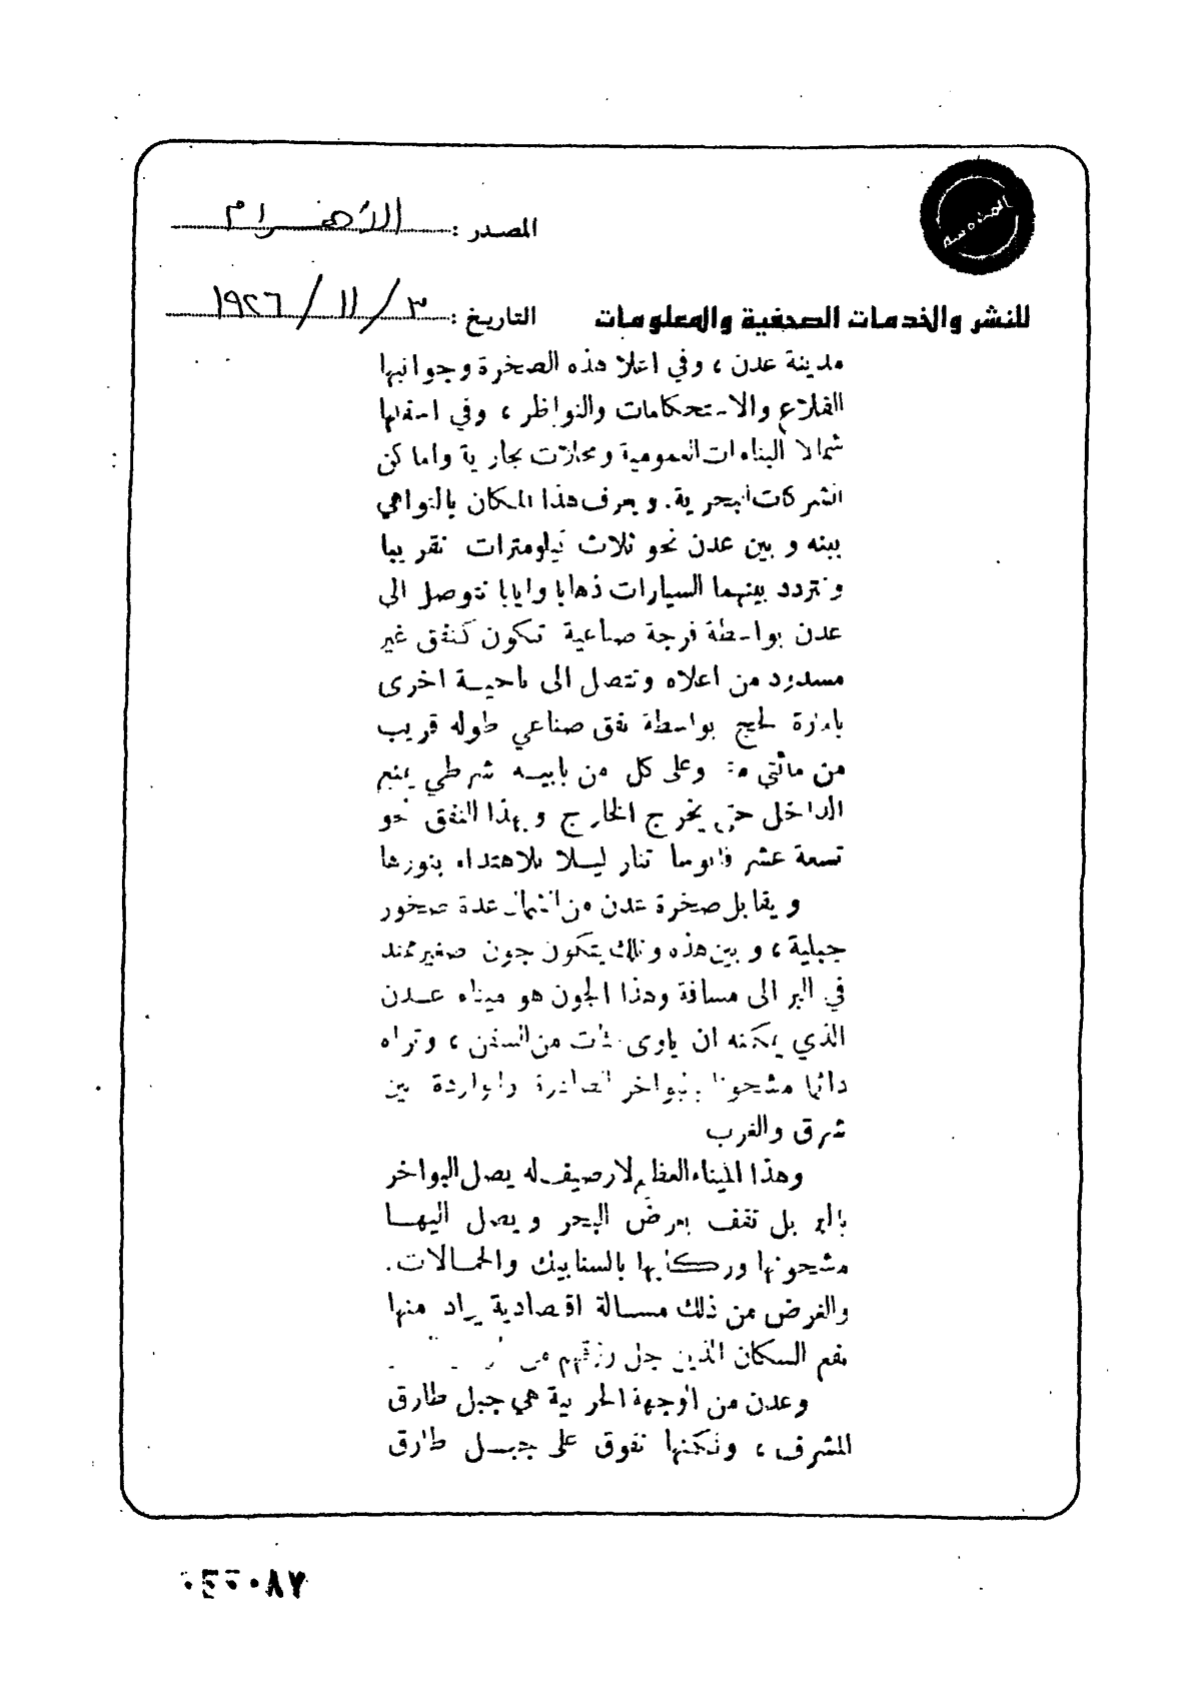 المصدر : الأهرام
للنشر والخدمات الصحفية والمعلومات
التاريخ : ٣ / ١١ / ١٩٢٦
مدينة عدن ، وفي اعلا هذه الصخرة وجوانبها
القلاع والاستحكامات والنواظر ، وفي اسفلها
شمالا البناءات العمومية ومحلات تجارية واماكن
الشركات البحرية . ويعرف هذا المكان بالتواهي
بينه وبين عدن نحو ثلاث كيلومترات تقريبا
وتتردد بينهما السيارات ذهابا وايابا تتوصل الى
عدن بواسطة فرجة صناعية تكون كنفق غير
مسدود من اعلاه وتتصل الى ناحية اخرى
بامارة لحج بواسطة نفق صناعي طوله قريب
من مائتي متر وعلى كل من بابيه شرطي يمنع
الداخل حتى يخرج الخارج وبهذا النفق نحو
تسعة عشر فانوسا تنار ليلا للاهتداء بنورها
ويقابل صخرة عدن من الشمال عدة صخور
جبلية ، وبين هذه وتلك يتكون جون صغير ممتد
في البر الى مسافة وهذا الجون هو ميناء عدن
الذي يمكنه ان ياوى مئات من السفن ، وتراه
دائما مشحونا بالبواخر الصادرة والواردة بين
شرق والغرب
وهذا الميناء العظيم لا رصيف له يصل البواخر
بالبر بل تقف بعرض البحر ويصل اليها
مشحونها وركابها بالسنابيك والحمالات .
والغرض من ذلك مسالة اقتصادية يراد منها
نفع السكان الذين جل رزقهم من
وعدن من الوجهة الحربية هي جبل طارق
المشرف ، ولكنها تفوق على جبل طارق